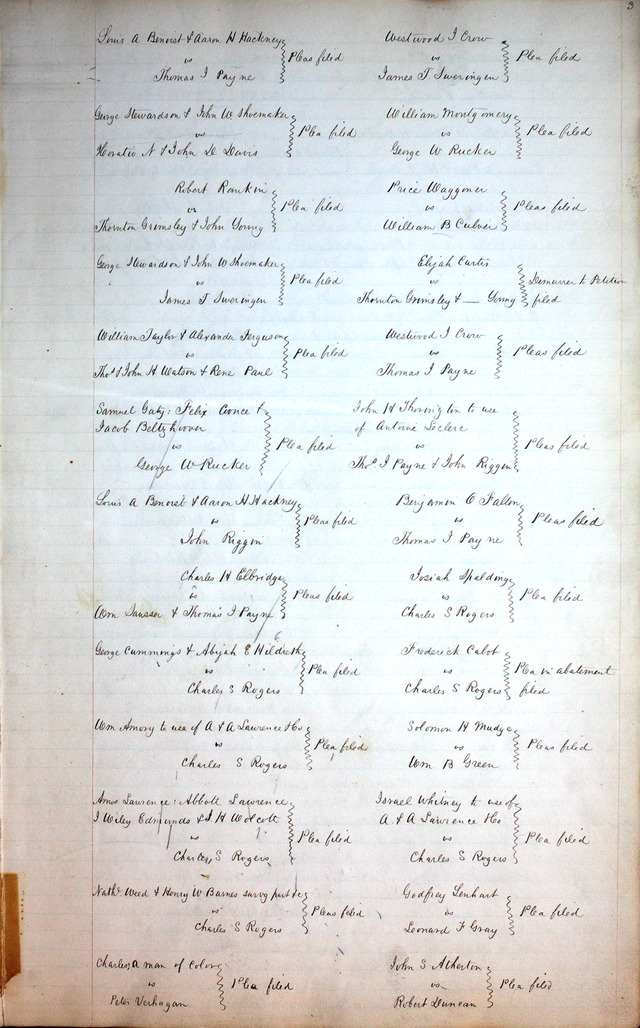 3
Louis A Benoist & Aaron H Hackney
vs
Thomas J Payne
Pleas filed
Westwood J Crow
vs
James T Sweringen
Plea filed
George Stewardson & John W Shoemaker
vs
Horatio N & John D Davis
Plea filed
William Montgomery
vs
George W Rucker
Plea filed
Robert Rankin
vs
Thornton Grimsley & John Young
Plea filed
Price Waggoner
vs
William B Culver
Pleas filed
George Stewardson & John W Shoemaker
vs
James T Sweringen
Plea filed
Elijah Curtis
vs
Thornton Grimsley & — Young
Demurrer to Petition
filed
William Taylor & Alexander Ferguson
vs
Thos & John H Watson & Rene Paul
Plea filed
Westwood J Crow
vs
Thomas J Payne
Pleas filed
Samuel Gaty: Felix Coonce &
Jacob Beltzhoover
vs
George W Rucker
Plea filed
John H Thorington to use
of Antoine Leclerc
vs
Thos J Payne & John Riggin
Pleas filed
Louis A Benoist & Aaron H Hackney
vs
John Riggin
Pleas filed
Benjamin O Fallon
vs
Thomas J Payne
Pleas filed
Charles H Elbridge
vs
Wm & Thomas J Payne
Pleas filed
Josiah Spalding
vs
Charles S Rogers
Plea filed
George Cummongs & Abijah E Hildreth
vs
Charles S Rogers
Plea filed
Frederick Cabot
vs
Charles S Rogers
Plea in abatement
filed
Wm Amory to use of A & A Lawrence & Co
vs
Charles S Rogers
Plea filed
Solomon H Mudge
vs
Wm B Green
Pleas filed
Amos Lawrence: Abbott Lawrence
J Wiley Edmunds & J H Wolcott
vs
Charles S Rogers
Plea filed
Israel Whitney to use of
A & A Lawrence & Co
vs
Charles S Rogers
Plea filed
Nathl Weed & Henry W Barnes survg part &c
vs
Charles S Rogers
Pleas filed
Godfrey Lenhart
vs
Leonard F Gray
Plea filed
Charles, a man of Color
vs
Peter Verhagan
Plea filed
John S Atherton
vs
Robert Duncan
Plea filed